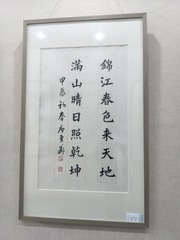 錦江春色来天地
满山晴日照乾坤
甲辰初春